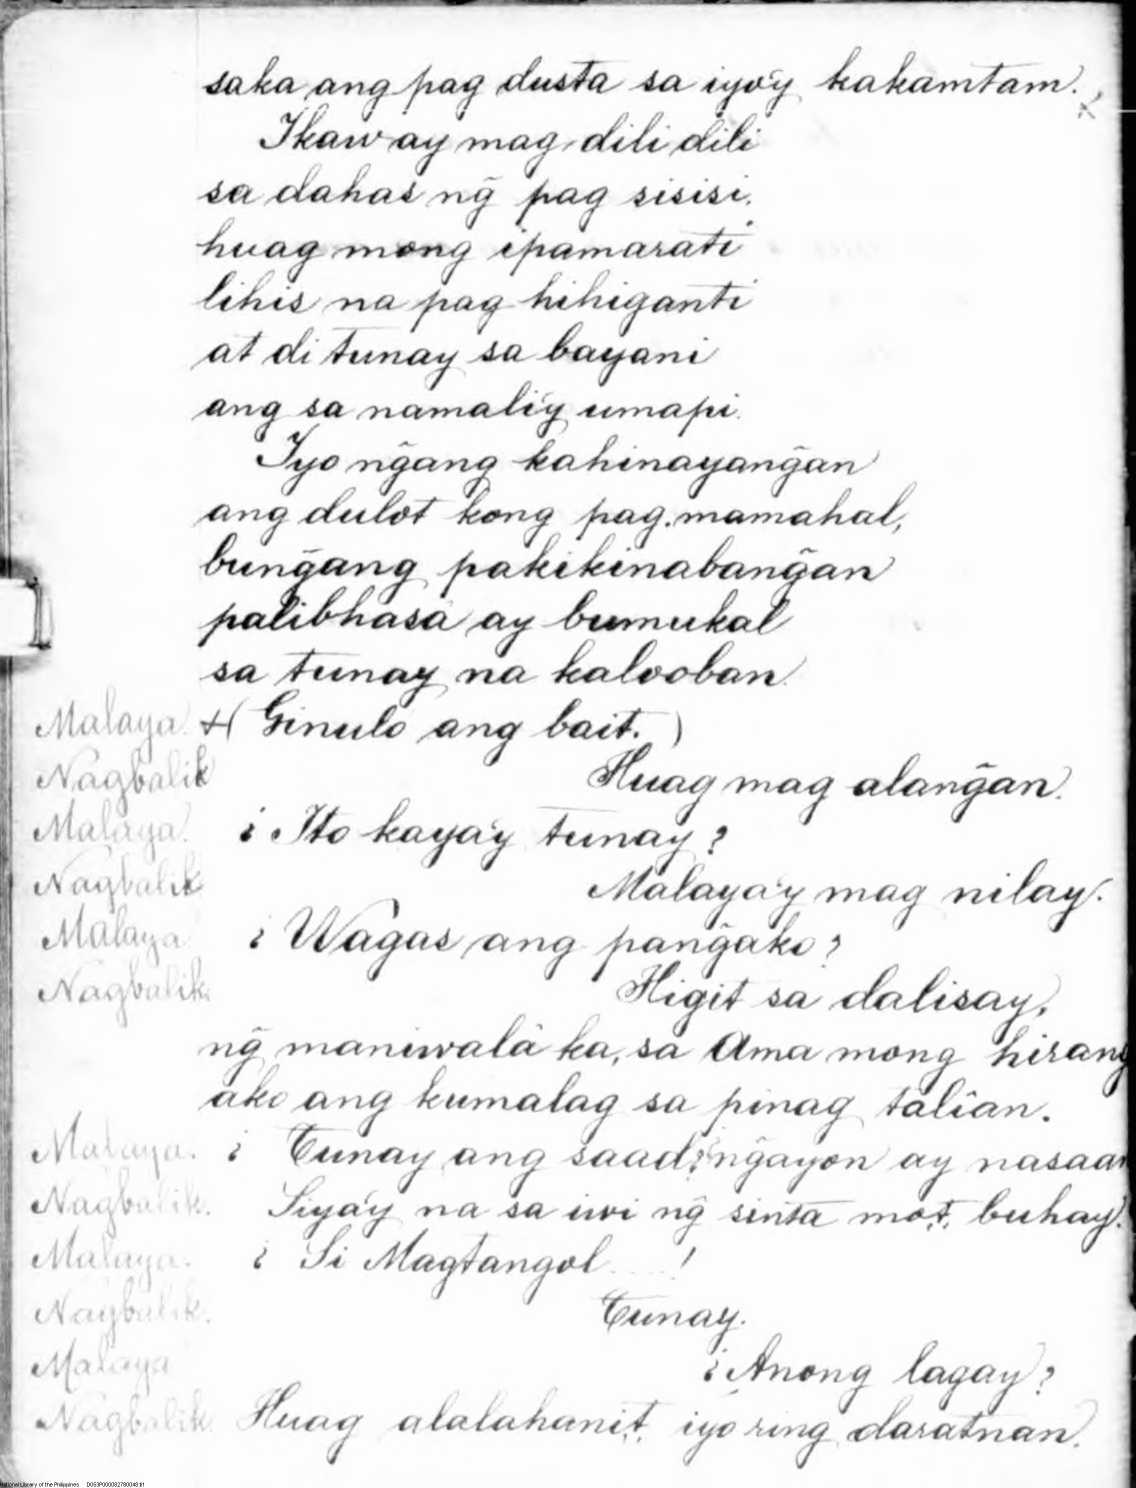 saka ang pag dusta sa iyo'y kakamtam.
Ikaw ay mag dili dili
sa dahas ng̃ pag sisisi.
huag mong ipamarati
lihis na pag hihiganti
at di tunay sa bayani
ang sa namali'y umapi.
Iyo ng̃ang kahinayang̃an
ang dulot kong pag mamahal,
bung̃ang pakikinabang̃an
palibhasa ay bumukal
sa tunay na kalooban.
Malaya. +( Ginulo ang bait. )
Nagbalik Huag mag alang̃an.
Malaya. ¿ Ito kaya'y tunay ?
Nagbalik Malaya'y mag nilay.
Malaya ¿ Wagas ang pang̃ako ?
Nagbalik. Higit sa dalisay,
ng̃ maniwalà ka, sa Ama mong hirang
ako ang kumalag sa pinag talian.
Malaya. ¿ Tunay ang saad? ng̃ayon ay nasaan
Nagbalik. Siya'y na sa iwi ng̃ sinta mo't, buhay.
Malaya. ¿ Si Magtangol .... !
Nagbalik. Tunay.
Malaya ¿ Anong lagay ?
Nagbalik. Huag alalahani't, iyo ring daratnan.
National Library of the Philippines